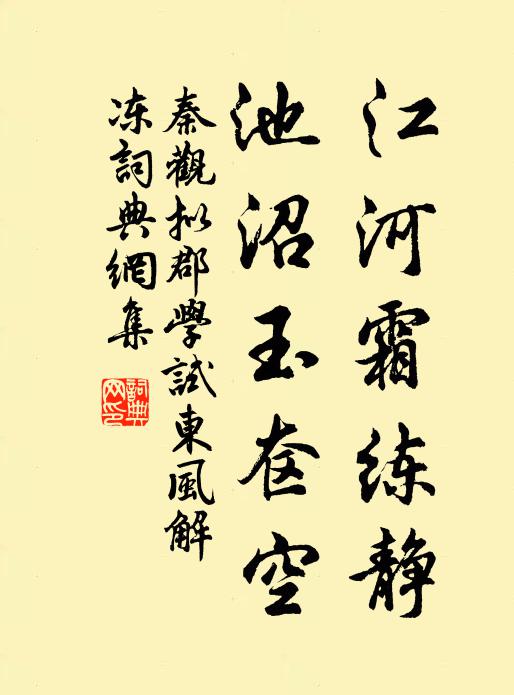 江河霜练静
池沼玉奁空
秦觀拟郡學試東風解
冻詞典網集
詞典网印